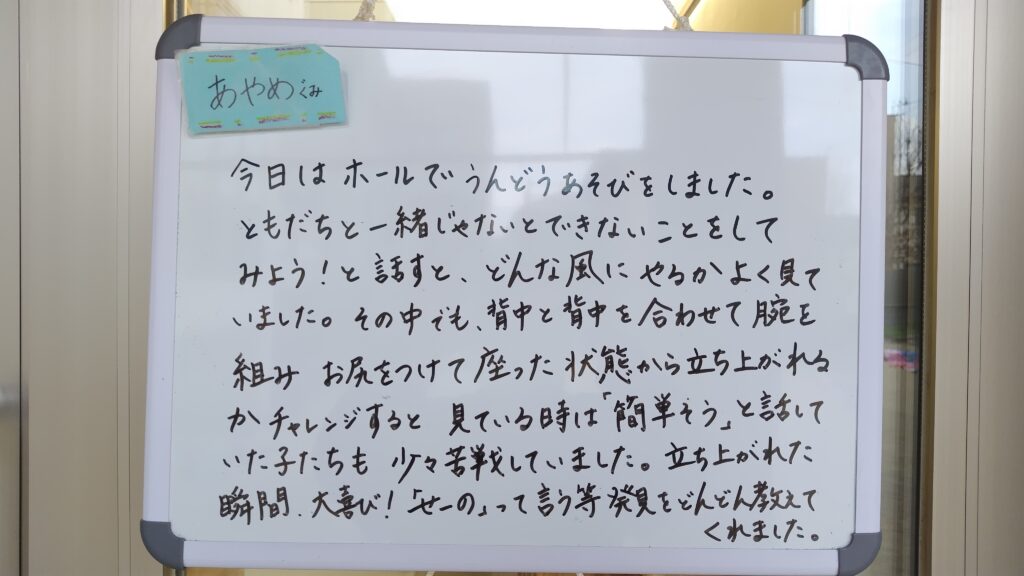 あやめぐみ
今日は ホールで うんどうあそびをしました。
ともだちと一緒じゃないとできないことをして
みよう！と話すと、どんな風に やるか よく見て
いました。その中でも、背中と背中を合わせて腕を
組み お尻をつけて座った状態から立ち上がれる
かチャレンジすると 見ている時は「簡単そう」と話して
いた子たちも 少々苦戦していました。立ち上がれた
瞬間、大喜び！「せーの」って言う等 発見をどんどん教えて
くれました。